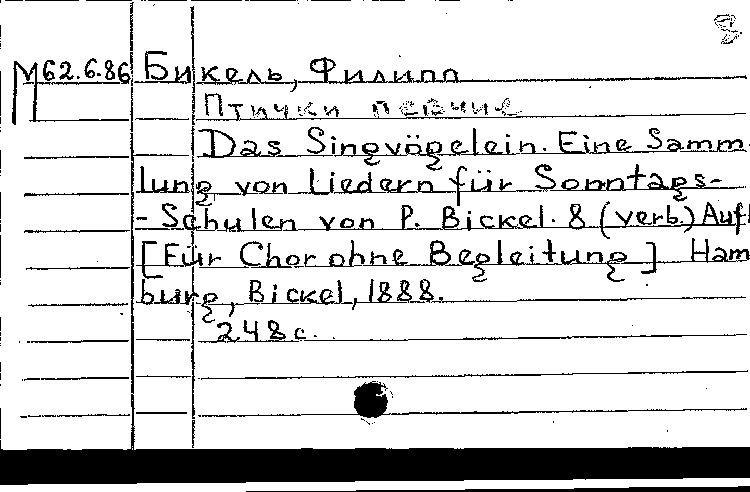 М62.6.86 Бикель, Филипп
Птички певчие
Das Singvögelein. Eine Samm-
lung von Liedern für Sonntags-
-Schulen von P. Bickel. 8 (verb.) Aufl
[Für Chor ohne Begleitung] Ham
burg, Bickel, 1888.
248 с.